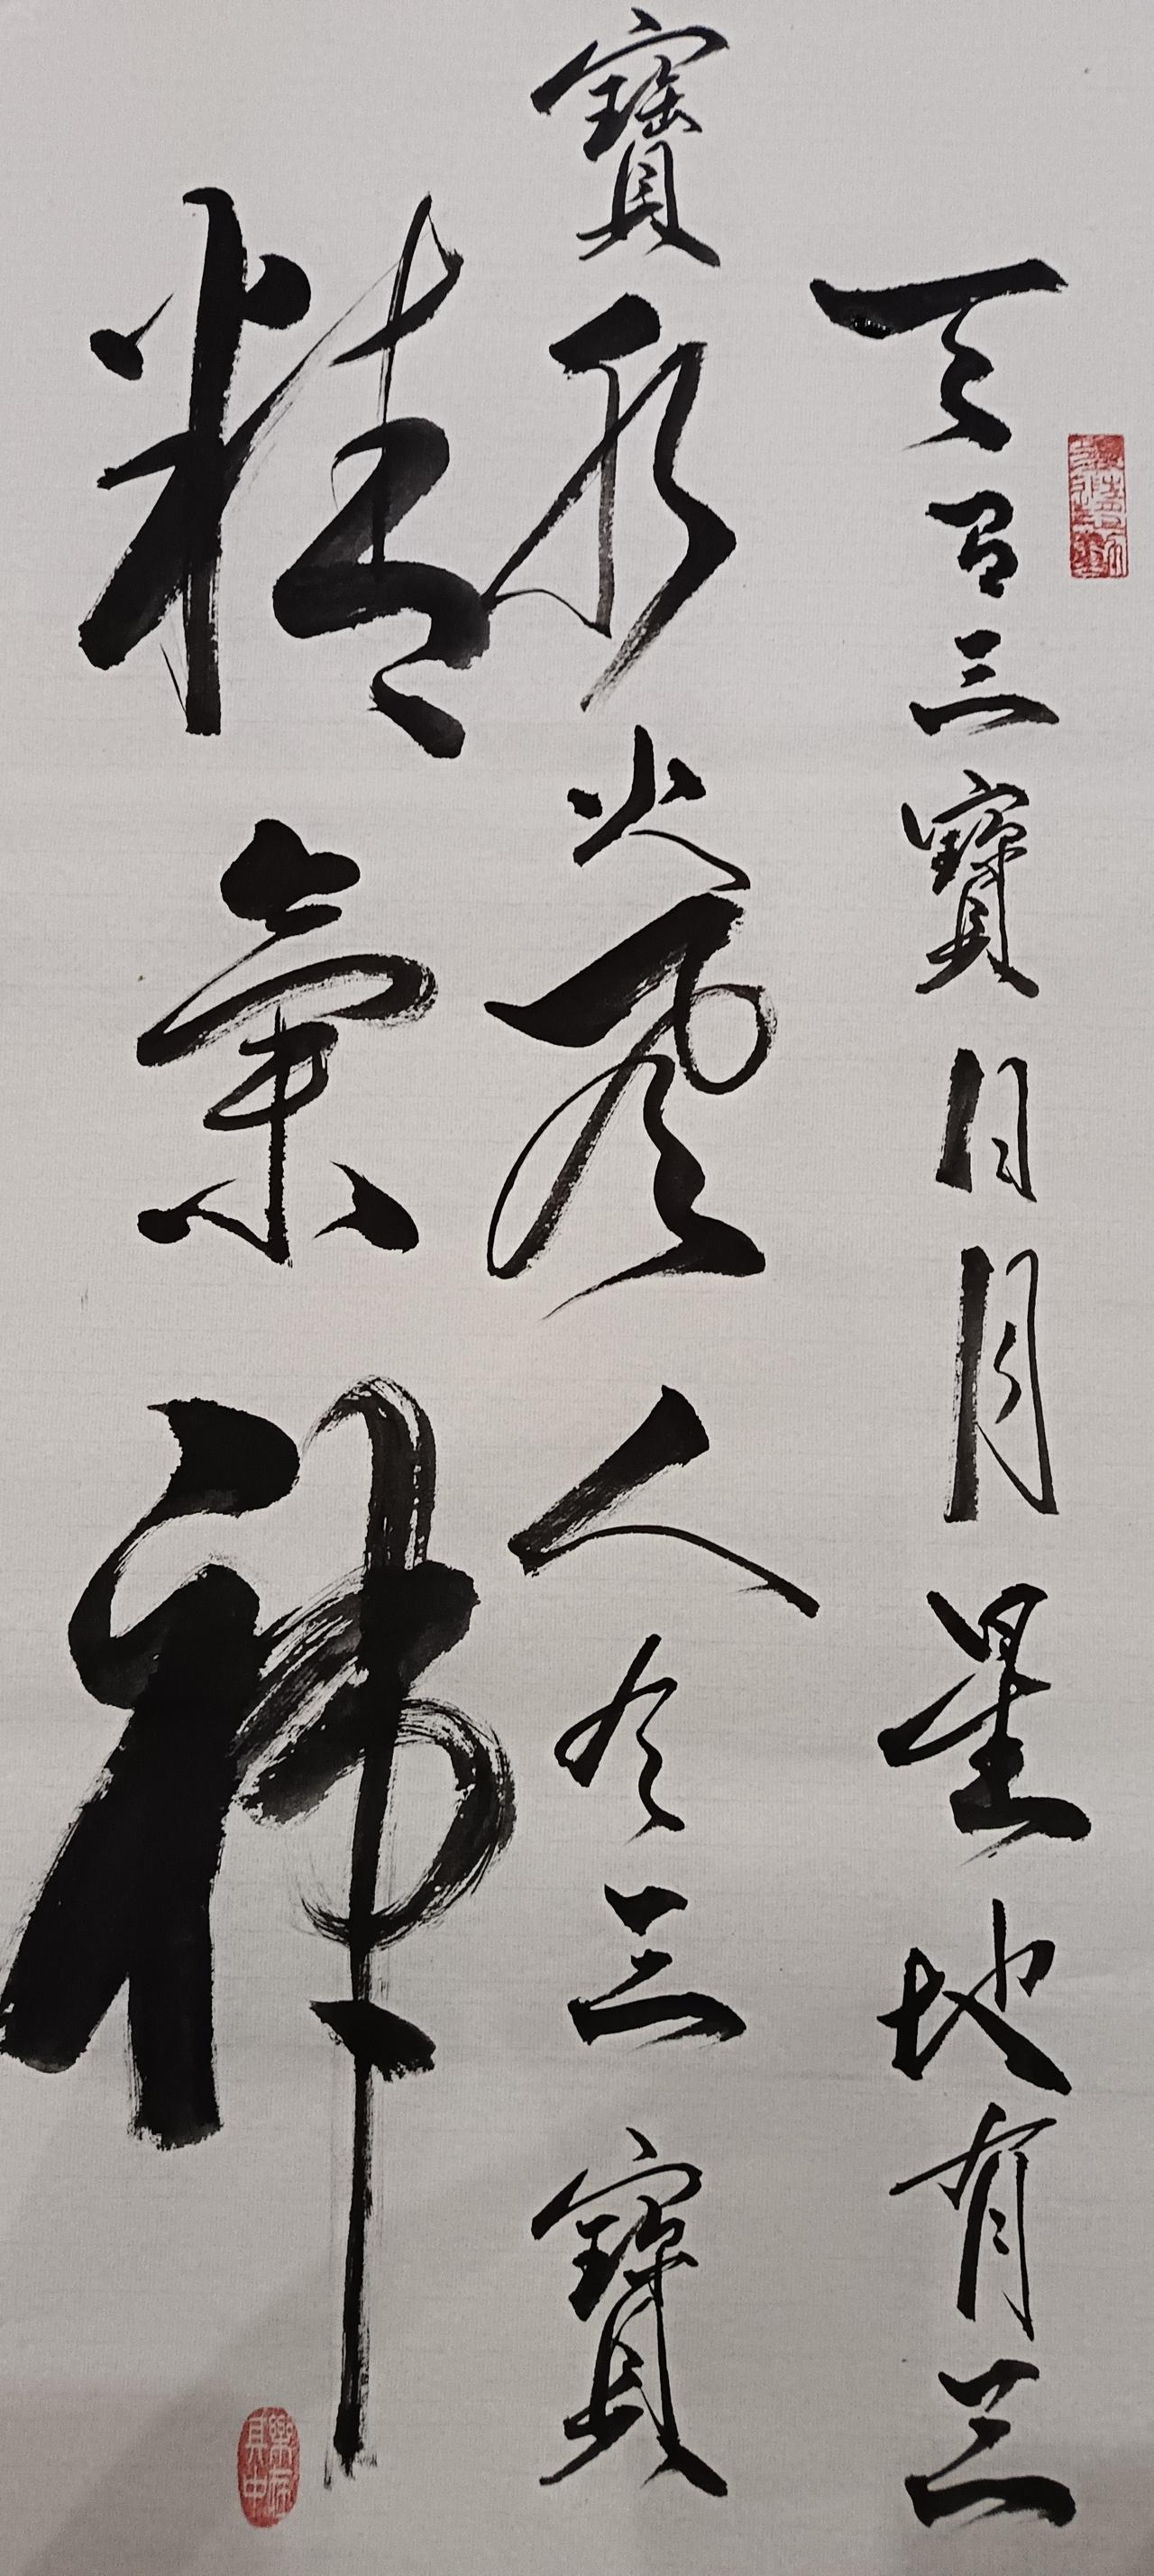 天有三寶日月星地有三
寶水火風人有三寶
精氣神
樂在其中